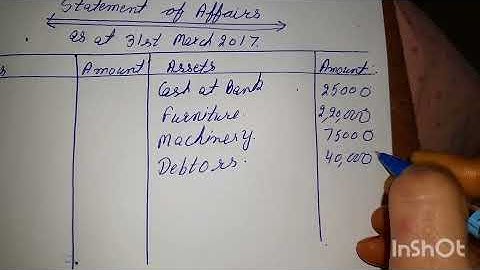 Statement of Affairs
as at 31st March 2017.
s Amount Assets Amount.
Cash at Bank 25000
Furniture 2,20,000
Machinery. 75000
Debtors. 40,000
InShOt